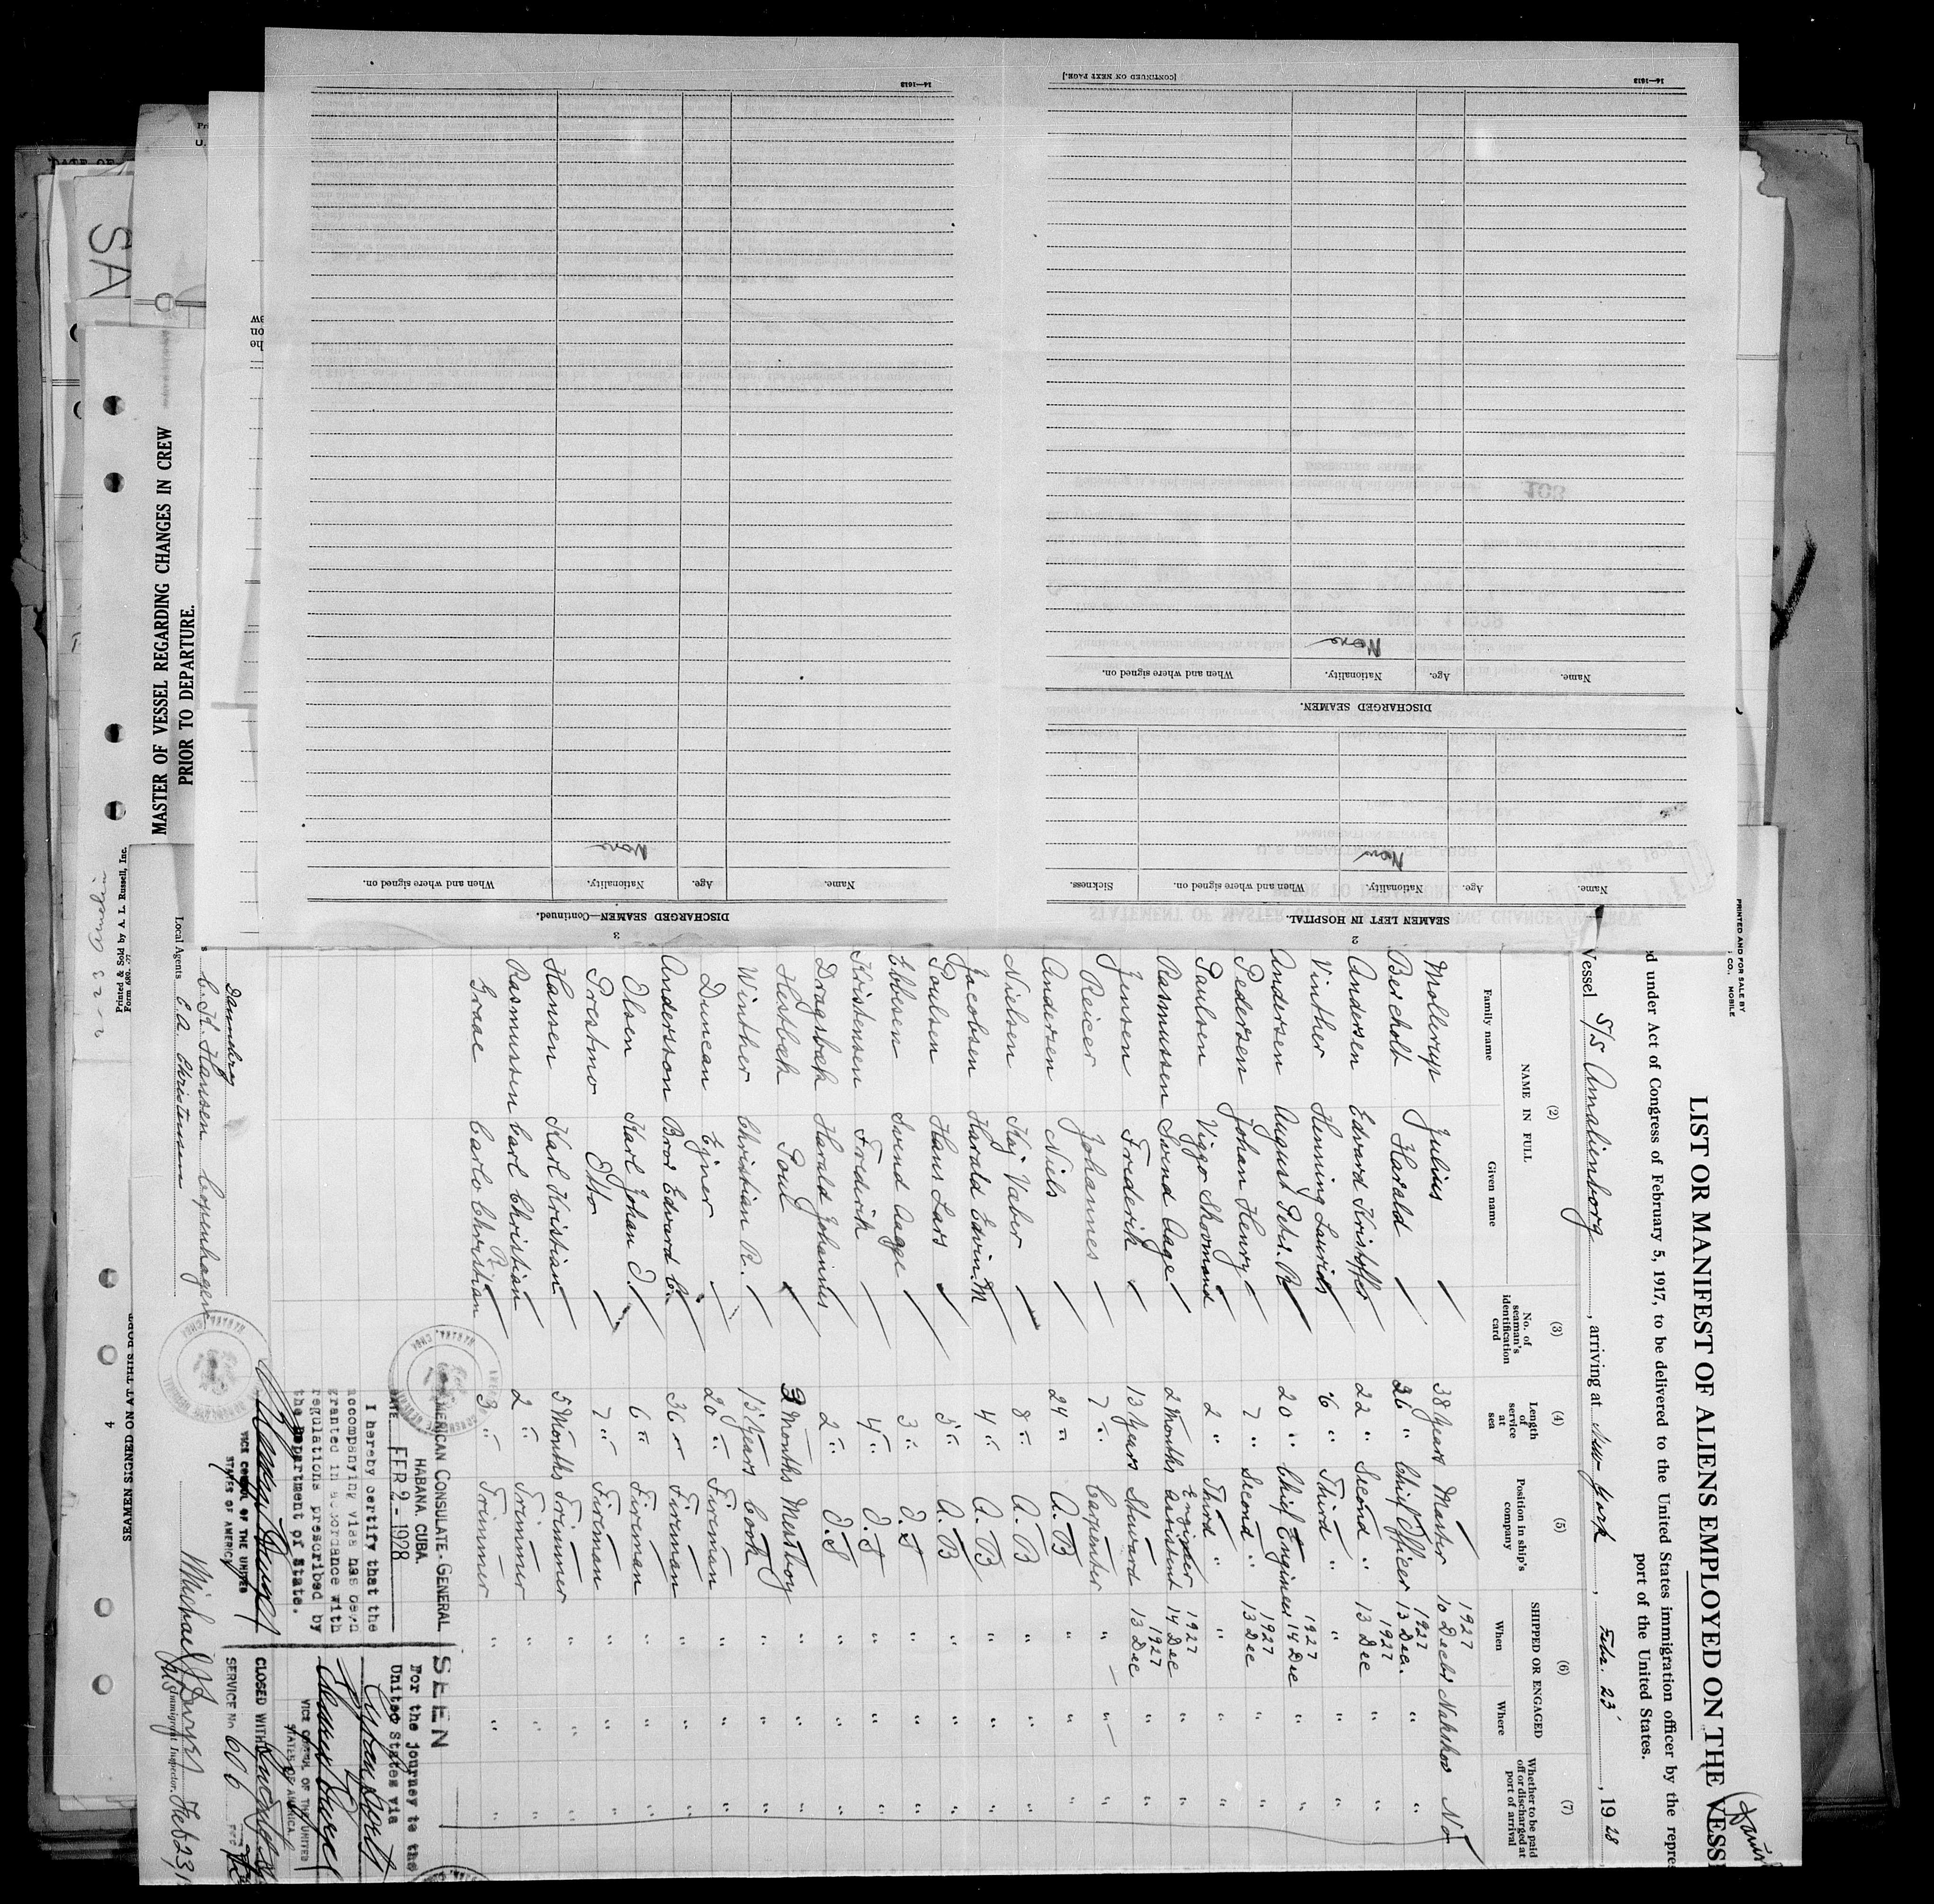 LIST OR MANIFEST OF ALIENS EMPLOYED ON THE VESSE
d under Act of Congress of February 5, 1917, to be delivered to the United States immigration officer by the repres
port of the United States.
Vessel S/S Amalienborg, arriving at New-York, Febr. 23, 1928
PRINTED AND FOR SALE BY
CO., MOBILE
(2) (3) (4) (5) (6) (7)
NAME IN FULL
Family name Given name
No. of seaman's identification card
Length of service at sea
Position in ship's company
SHIPPED OR ENGAGED
When Where
Whether to be paid off or discharged at port of arrival
Mollerup Julius 38 Years Master 1927 10 Decbr Nakskov No
Bercholt Harald 26 " Chief Officer 1927 13 Dec. " "
Andersen Edvard Kristoffer 22 " Second " 1927 13 Dec " "
Vinther Henning Laurids 6 " Third " " " "
Andersen August Petr. R 20 " Chief Engineer 1927 14 Dec " "
Pedersen Johan Henry 7 " Second " 1927 13 Dec " "
Paulsen Viggo Skovmand 2 " Third " " " "
Rasmussen Svend Aage 2 Months Engineer assistent 1927 14 Dec " "
Jensen Frederik 13 Years Steward 1927 13 Dec " "
Reicer Johannes 7 " Carpenter " " "
Andersen Niels 24 " A.B " " "
Nielsen Kaj Vaber 8 " A.B " " "
Jacobsen Harald Edvin M 4 " A.B " " "
Poulsen Hans Lars 5 " A.B " " "
Ebbesen Svend Aage 3 " O.S " " "
Kristensen Frederik 4 " O.S " " "
Dragsbæk Harald Johannes 2 " O.S " " "
Hestbæk Poul 2 Months Messboy " " "
Winther Christian R. 15 Years Cook " " "
Duncan Ejner 20 " Fireman " " "
Andersson Bror Edvard C. 36 " Fireman " " "
Olsen Karl Johan O. 6 " Fireman " " "
Prestmo Otto 7 " Fireman " " "
Hansen Karl Kristian 5 Months Trimmer " " "
Rasmussen Carl Christian 2 " Trimmer " " "
Graae Carlo Christian P. 3 " Trimmer " " "
AMERICAN CONSULATE-GENERAL
HABANA, CUBA.
DATE FEB 2 - 1928
I hereby certify that the
accompanying visa has been
granted in accordance with
regulations prescribed by
the Department of State.
VICE CONSUL OF THE UNITED
STATES OF AMERICA
SEEN
For the journey to the
United States via
VICE CONSUL OF THE UNITED
STATES OF AMERICA
CLOSED WITH
SERVICE No 606
Dannebrog
C. K. Hansen Copenhagen
Local Agents C. A. Christensen
Immigrant Inspector. Feb 23,
Printed & Sold by A. L. Russell, Inc.
2
SEAMEN LEFT IN HOSPITAL.
Name. Age. Nationality. When and where signed on. Sickness.
None
DISCHARGED SEAMEN.
Name. Age. Nationality. When and where signed on.
None
[CONTINUED ON NEXT PAGE.]
14—1613
3
DISCHARGED SEAMEN—Continued.
Name. Age. Nationality. When and where signed on.
None
14—1613
MASTER OF VESSEL REGARDING CHANGES IN CREW
PRIOR TO DEPARTURE.
4
SEAMEN SIGNED ON AT THIS PORT
SA
DATE OF